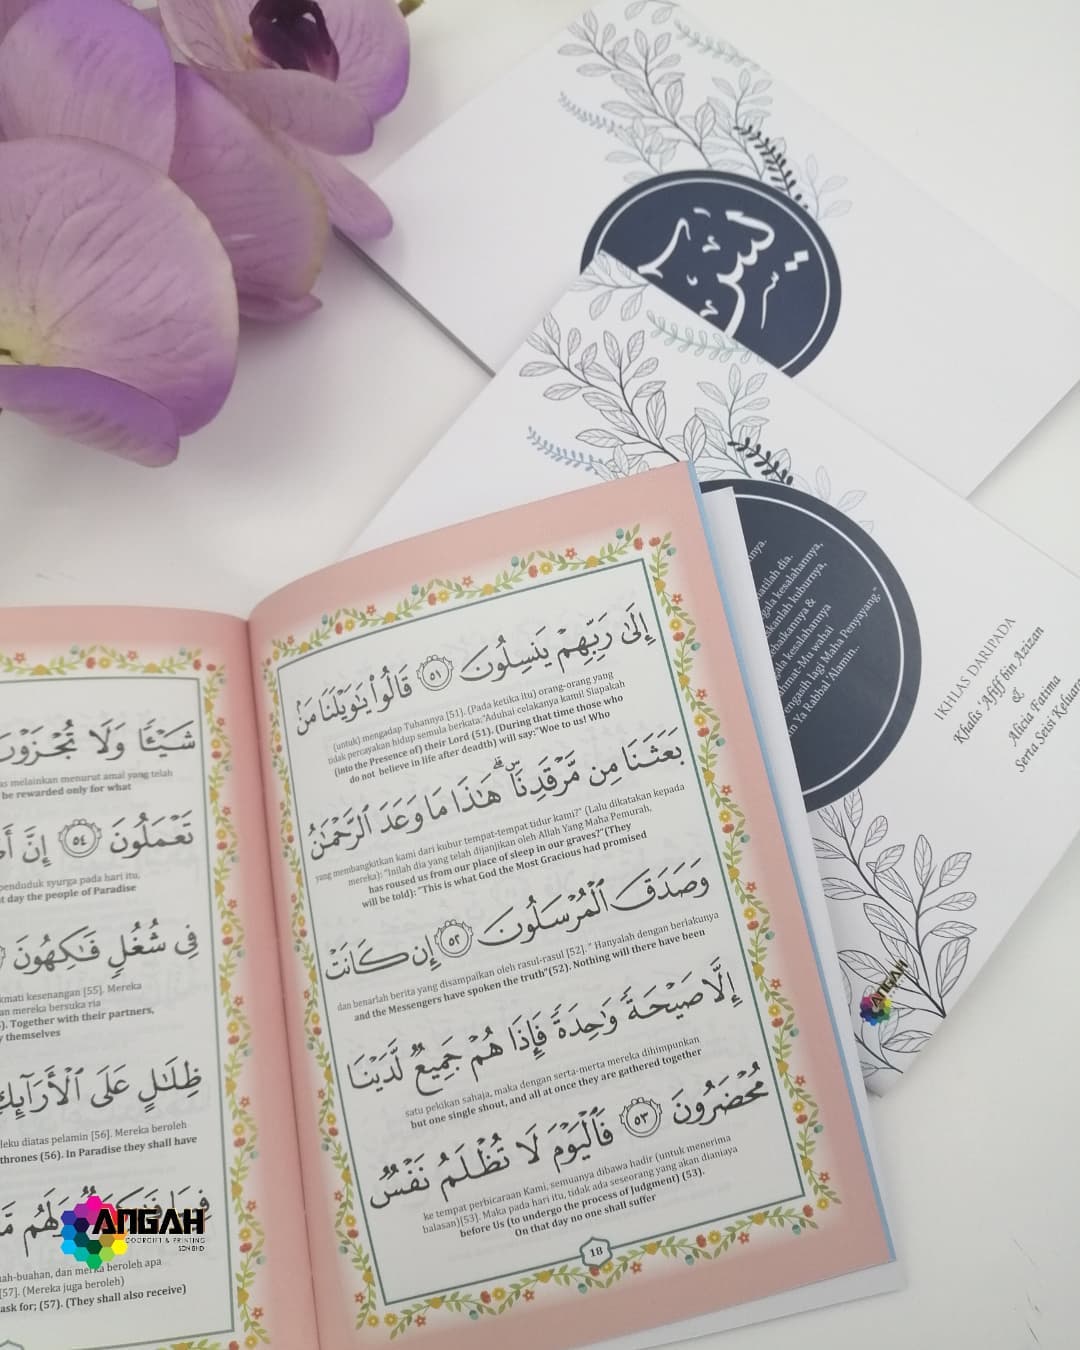 يس
إِلَىٰ رَبِّهِمْ يَنسِلُونَ ٥١ قَالُوا۟ يَـٰوَيْلَنَا مَنۢ
(untuk) mengadap Tuhannya [51]. (Pada ketika itu) orang-orang yang
tidak percayakan hidup semula berkata:"Aduhai celakanya kami! Siapakah
(into the Presence of) their Lord (51). (During that time those who
do not believe in life after deadth) will say:"Woe to us! Who
بَعَثَنَا مِن مَّرْقَدِنَا ۜ ۗ هَـٰذَا مَا وَعَدَ ٱلرَّحْمَـٰنُ
yang membangkitkan kami dari kubur tempat-tempat tidur kami?" (Lalu dikatakan kepada
mereka): "Inilah dia yang telah dijanjikan oleh Allah Yang Maha Pemurah,
has roused us from our place of sleep in our graves?"(They
will be told): "This is what God the Most Gracious had promised
وَصَدَقَ ٱلْمُرْسَلُونَ ٥٢ إِن كَانَتْ
dan benarlah berita yang disampaikan oleh rasul-rasul [52]." Hanyalah dengan berlakunya
and the Messengers have spoken the truth"(52). Nothing will there have been
إِلَّا صَيْحَةً وَٰحِدَةً فَإِذَا هُمْ جَمِيعٌ لَّدَيْنَا
satu pekikan sahaja, maka dengan serta-merta mereka dihimpunkan
but one single shout, and all at once they are gathered together
مُحْضَرُونَ ٥٣ فَٱلْيَوْمَ لَا تُظْلَمُ نَفْسٌ
ke tempat perbicaraan Kami, semuanya dibawa hadir (untuk menerima
balasan)[53]. Maka pada hari itu, tidak ada seseorang yang akan dianiaya
before Us (to undergo the process of Judgment) (53).
On that day no one shall suffer
18
شَيْـًٔا وَلَا تُجْزَوْنَ
melainkan menurut amal yang telah
be rewarded only for what
تَعْمَلُونَ ٥٤ إِنَّ
penduduk syurga pada hari itu,
day the people of Paradise
فِى شُغُلٍ فَـٰكِهُونَ
kesenangan [55]. Mereka
mereka bersuka ria
Together with their partners,
themselves
ظِلَـٰلٍ عَلَى ٱلْأَرَآئِكِ
diatas pelamin [56]. Mereka beroleh
thrones (56). In Paradise they shall have
فِيهَا فَـٰكِهَةٌ وَلَهُم
dan mereka beroleh apa
[57]. (Mereka juga beroleh)
ask for; (57). (They shall also receive)
dia.
kesalahannya,
kuburnya,
&
kesalahannya
wahai
lagi Maha Penyayang."
Ya Rabbal 'Alamin..
IKHLAS DARIPADA
Khalis 'Afiff bin Azizan
&
Alicia Fatima
Serta Seisi
ANGAH
ANGAH
DOORGIFT & PRINTING
SDN BHD